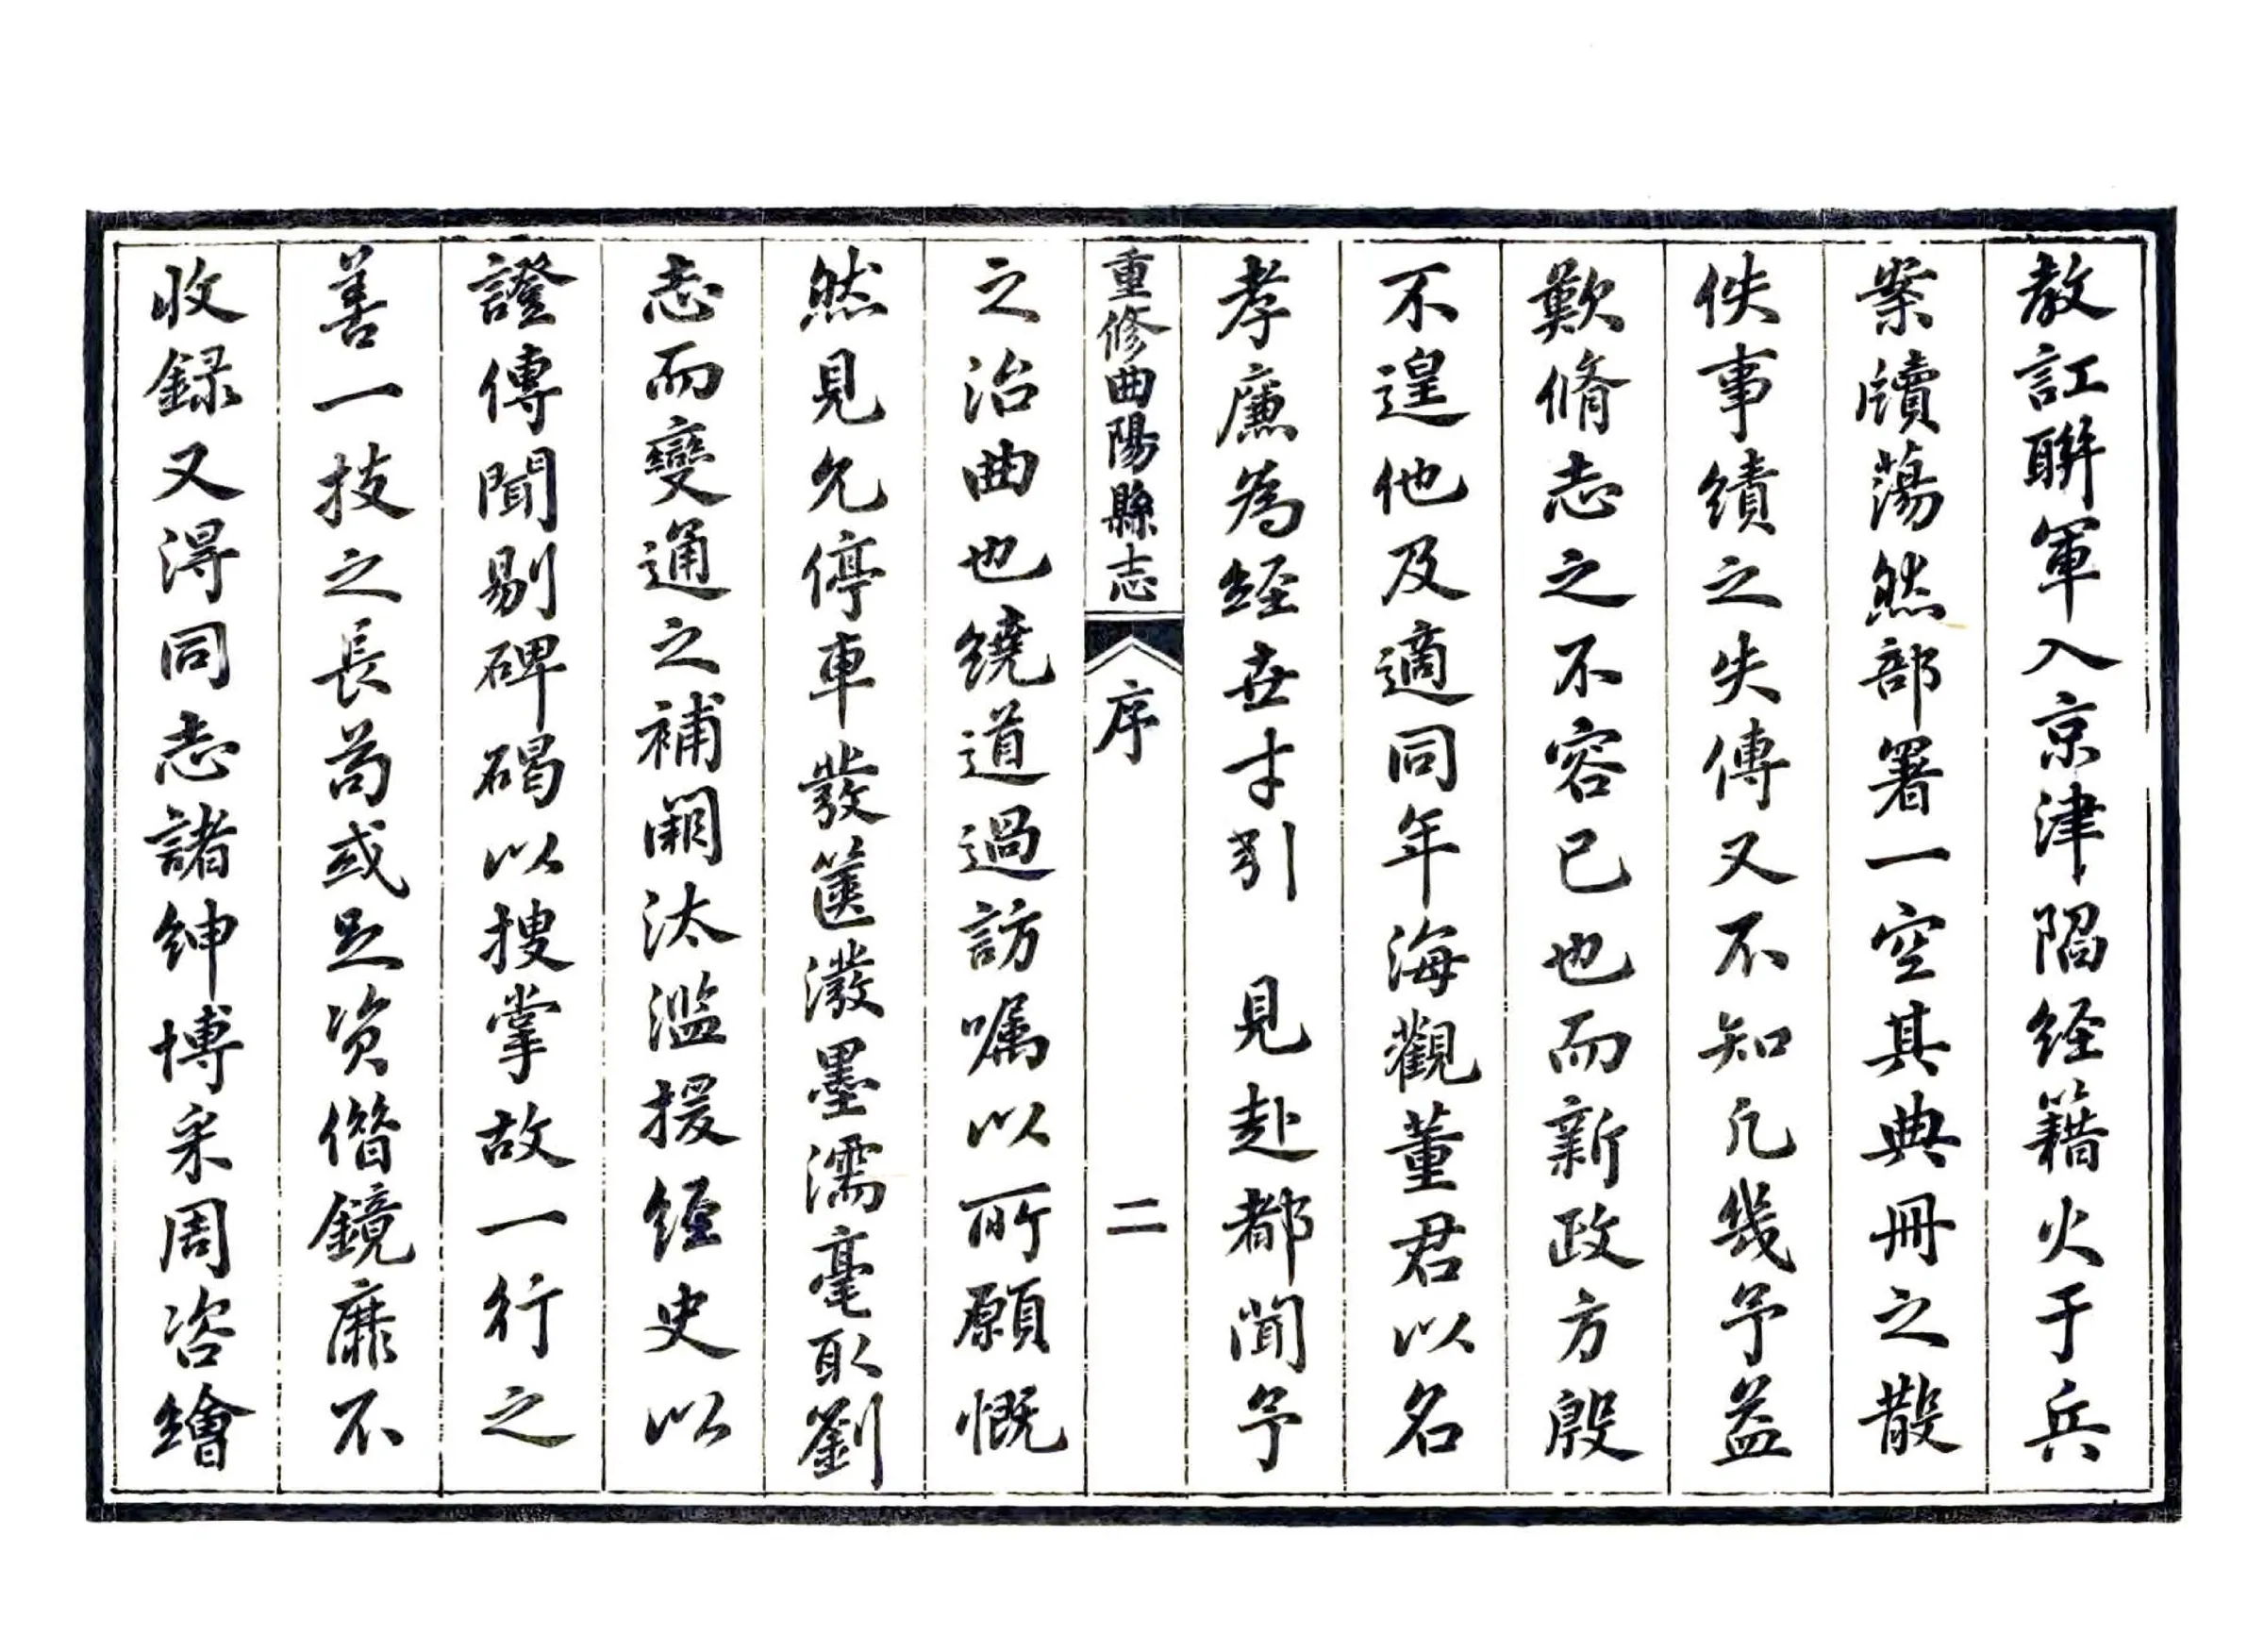 教訌聨軍入京津陷経籍火于兵
案牘蕩然部署一空其典冊之散
佚事績之失傳又不知凢幾予益
歎脩志之不容已也而新政方殷
不遑他及適同年海觀董君以名
孝廉為経世才引　見赴都聞予
重修曲陽縣志　序　二
之治曲也繞道過訪嘱以所願慨
然見允停車發篋潑墨濡毫取劉
志而變通之補闕汰濫援經史以
證傳聞剔碑碣以搜掌故一行之
善一技之長苟或足资借鏡靡不
收録又淂同志諸紳博采周咨繪